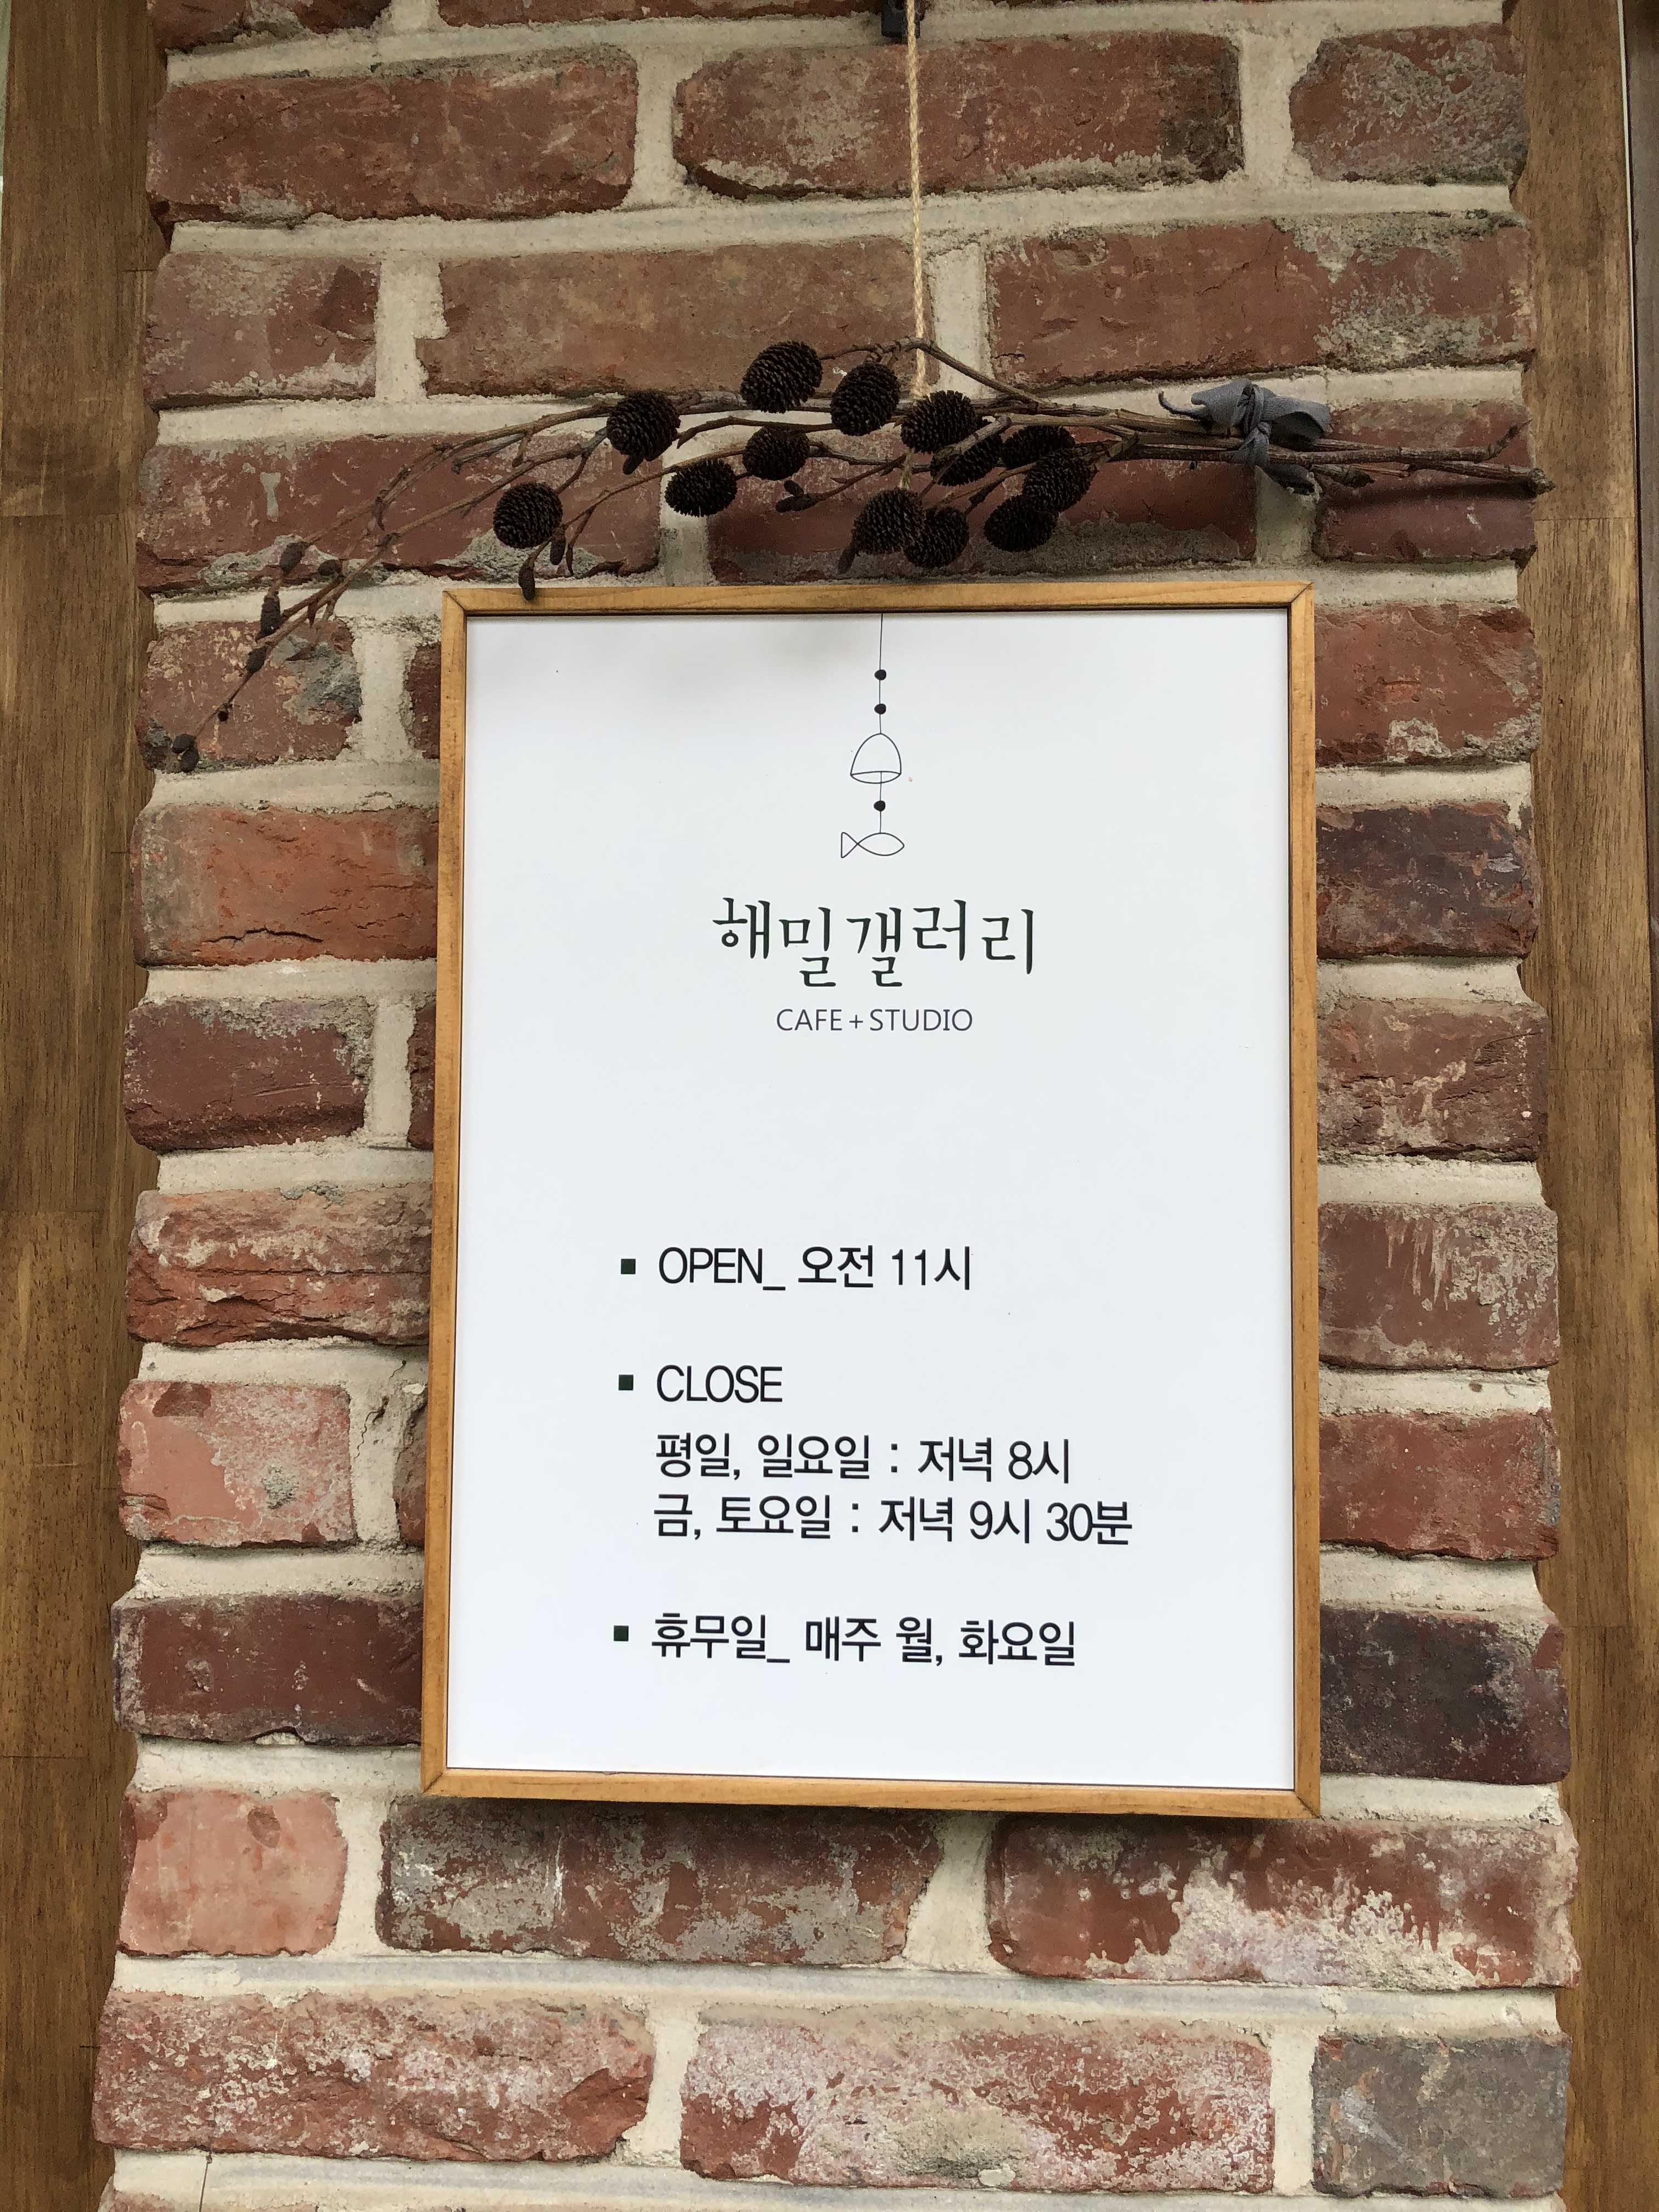 해밀갤러리
CAFE+STUDIO
▪ OPEN_ 오전 11시
▪ CLOSE
평일, 일요일 : 저녁 8시
금, 토요일 : 저녁 9시 30분
▪ 휴무일_ 매주 월, 화요일